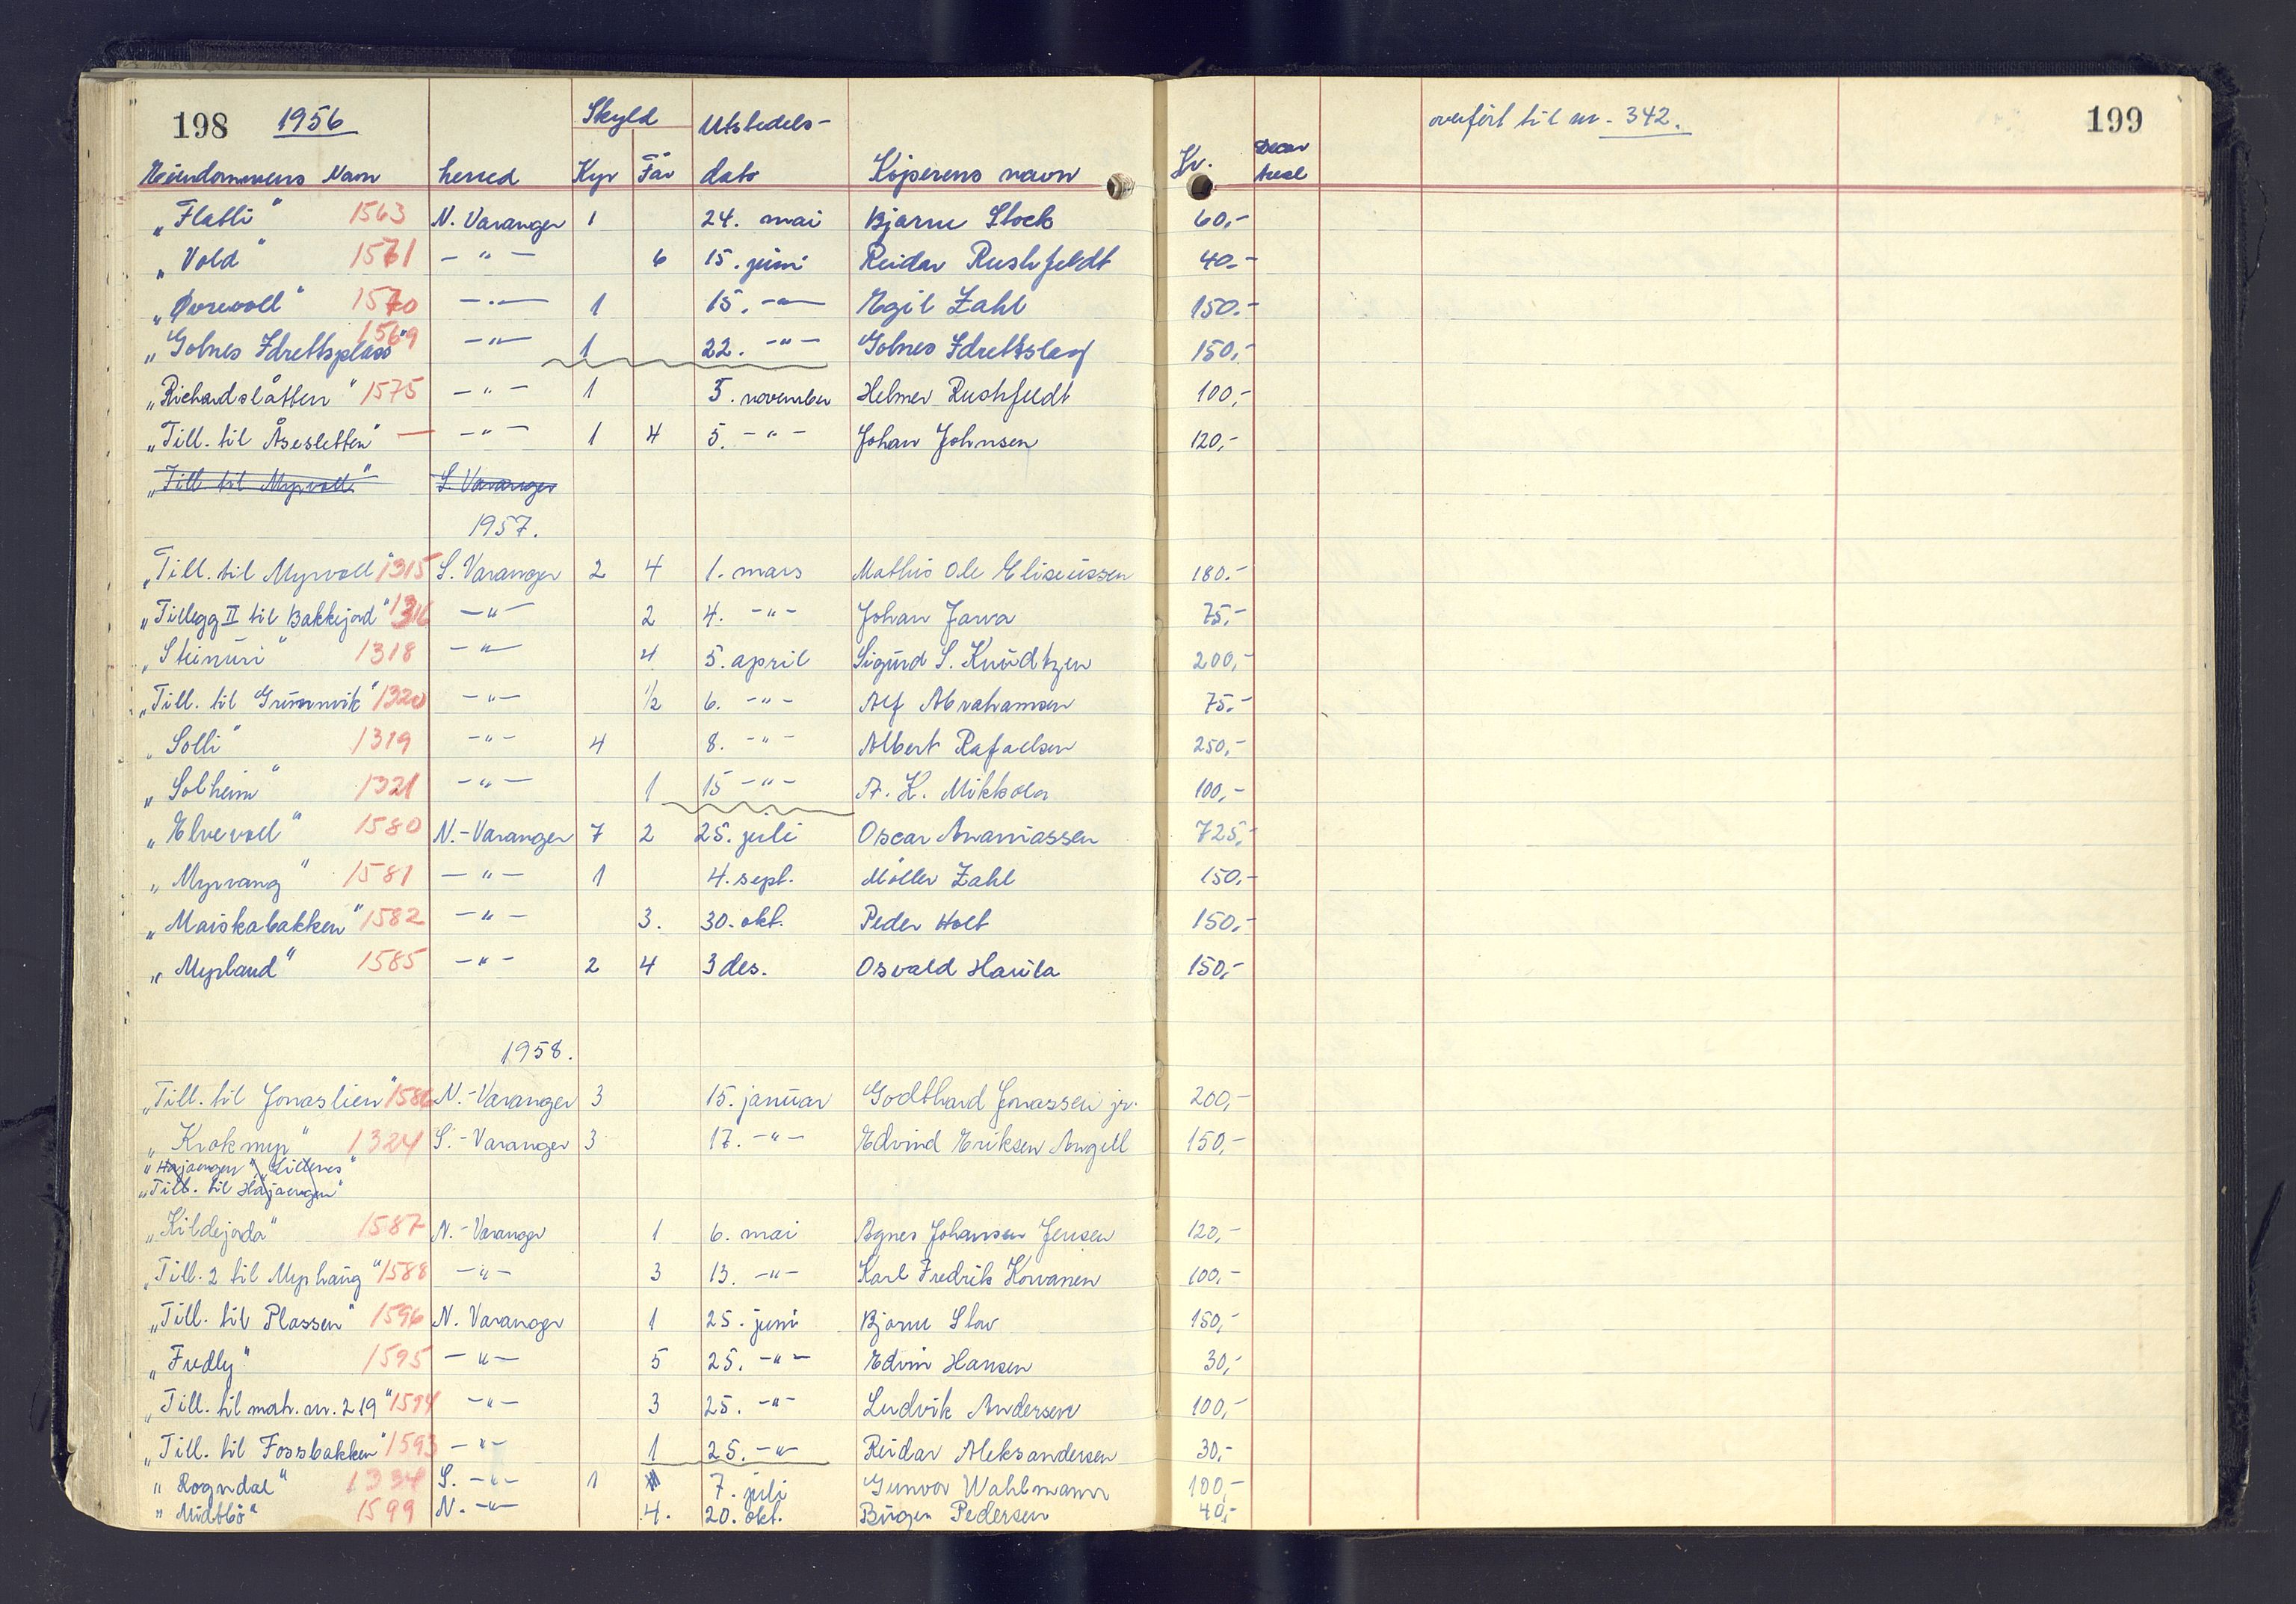 198 1956 Skyld Utstedels- overført til nr. 342. 199
Eiendommens Navn herred Kyr Får dato Kjøperens navn Kr. Areal
„Flatli" 1563 N. Varanger 1 24. mai Bjarne Stock 60,-
„Vold" 1571 - " - 6 15. juni Reidar Rushfeldt 40.-
„Øvrevoll" 1570 - " - 1 15. - " - Egil Zahl 150.-
„Golnes Idrettsplass" 1569 - " - 1 22. - " - Golnes Idrettslag 150,-
„Richardslåtten" 1575 - " - 1 5. november Helmer Rushfeldt 100,-
„Till. til Åsesletten" — - " - 1 4 5. - " - Johan Johnsen 120,-
„Till. til Myrvoll" S. Varanger
1957.
„Till. til Myrvoll" 1315 S. Varanger 2 4 1. mars Mathis Ole Eliseussen 180.-
„Tillegg II til Bakkejord" 1316 - " - 2 4. - " - Johan Jarva 75,-
„Steinuri" 1318 - " - 4 5. april Sigurd S. Knudtzen 200,-
„Till. til Grunnvik" 1320 - " - 1/2 6. - " - Alf Abrahamsen 75.-
„Solli" 1319 - " - 4 8. - " - Albert Rafaelsen 250,-
„Solheim" 1321 - " - 1 15 - " - A. K. Mikkola 100,-
„Elvevoll" 1580 N.-Varanger 7 2 25. juli Oscar Ananiassen 725,-
„Myrvang" 1581 - " - 1 4. sept. Møller Zahl 150,-
„Maiskabakken" 1582 - " - 3. 30. okt. Peder Holt 150,-
„Myrland" 1585 - " - 2 4 3 des. Osvald Haula 150,-
1958.
„Till. til Jonaslien" 1586 N.-Varanger 3 15. januar Godthard Jonassen jr. 200,-
„Krokmyr" 1324 S.-Varanger 3 17. - " - Edvind Eriksen Angell 150,-
„Højaengen", „Lillenes"
„Till. til Højaengen"
„Kildejorda" 1587 N.-Varanger 1 6. mai Agnes Johansen Jensen 120,-
„Till. 2 til Myrhaug" 1588 - " - 3 13. - " - Karl Fredrik Korvanen 100,-
„Till. til Plassen" 1596 N. Varanger 1 25. juni Bjarne Slov 150,-
„Fredly" 1595 - " - 5 25. - " - Edvin Hansen 30,-
„Till. til matr. nr. 219" 1594 - " - 3 25. - " - Ludvik Andersen 100,-
„Till. til Fossbakken" 1593 - " - 1 25. - " - Reidar Aleksandersen 30,-
„Rogndal" 1334 S. - " - 1 7. juli Gunvor Wahlmann 100,-
„Midtbø" 1599 N. - " - 4. 20. okt. Birger Pedersen 40,-